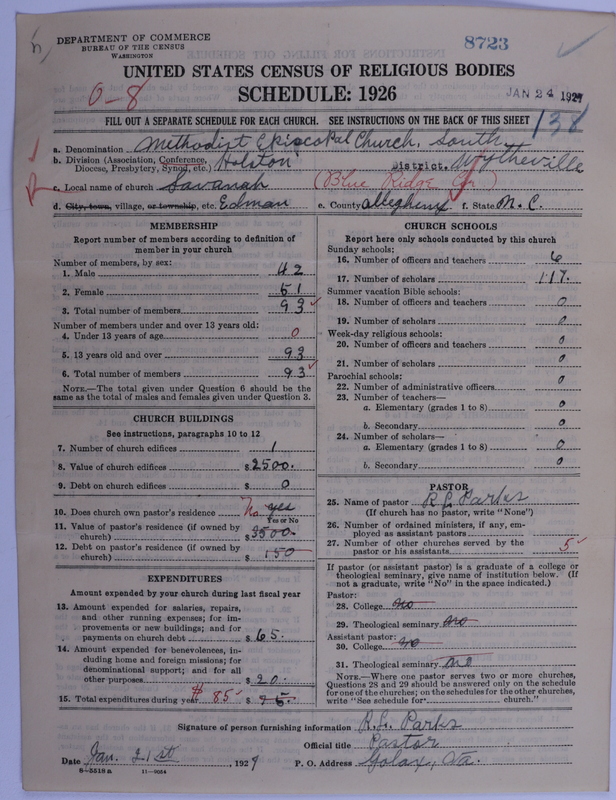 DEPARTMENT OF COMMERCE
BUREAU OF THE CENSUS
WASHINGTON
8723
UNITED STATES CENSUS OF RELIGIOUS BODIES
SCHEDULE: 1926
JAN 24 1927
0-8
FILL OUT A SEPARATE SCHEDULE FOR EACH CHURCH. SEE INSTRUCTIONS ON THE BACK OF THIS SHEET
138
a. Denomination Methodist Episcopal Church, South
b. Division (Association, Conference, Diocese, Presbytery, Synod, etc.) Holston District. Wytheville
c. Local name of church Savanah (Blue Ridge Cir)
d. City, town, village, or township, etc. Edman e. County Alleghany f. State N. C.
MEMBERSHIP
Report number of members according to definition of
member in your church
Number of members, by sex:
1. Male 42
2. Female 51
3. Total number of members 93
Number of members under and over 13 years old:
4. Under 13 years of age 0
5. 13 years old and over 93
6. Total number of members 93
NOTE.—The total given under Question 6 should be the
same as the total of males and females given under Question 3.
CHURCH BUILDINGS
See instructions, paragraphs 10 to 12
7. Number of church edifices 1
8. Value of church edifices $2500.
9. Debt on church edifices $ 0
10. Does church own pastor's residence No yes
Yes or No
11. Value of pastor's residence (if owned by
church) $3500.
12. Debt on pastor's residence (if owned by
church) $ 150
EXPENDITURES
Amount expended by your church during last fiscal year
13. Amount expended for salaries, repairs,
and other running expenses; for im-
provements or new buildings; and for
payments on church debt $ 65.
14. Amount expended for benevolences, in-
cluding home and foreign missions; for
denominational support; and for all
other purposes $ 20.
15. Total expenditures during year $ 85
CHURCH SCHOOLS
Report here only schools conducted by this church
Sunday schools:
16. Number of officers and teachers 6
17. Number of scholars 117.
Summer vacation Bible schools:
18. Number of officers and teachers 0
19. Number of scholars 0
Week-day religious schools:
20. Number of officers and teachers 0
21. Number of scholars 0
Parochial schools:
22. Number of administrative officers 0
23. Number of teachers—
a. Elementary (grades 1 to 8) 0
b. Secondary 0
24. Number of scholars—
a. Elementary (grades 1 to 8) 0
b. Secondary 0
PASTOR
25. Name of pastor R. L. Parks
(If church has no pastor, write "None")
26. Number of ordained ministers, if any, em-
ployed as assistant pastors
27. Number of other churches served by the
pastor or his assistants 5
If pastor (or assistant pastor) is a graduate of a college or
theological seminary, give name of institution below. (If
not a graduate, write "No" in the space indicated.)
Pastor:
28. College no
29. Theological seminary no
Assistant pastor:
30. College no
31. Theological seminary no
NOTE.—Where one pastor serves two or more churches,
Questions 28 and 29 should be answered only on the schedule
for one of the churches; on the schedules for the other churches,
write "See schedule for church."
Signature of person furnishing information R. L. Parks
Official title Pastor
Date Jan. 21st, 1927 P. O. Address Galax, Va.
8-5518a 11-9054